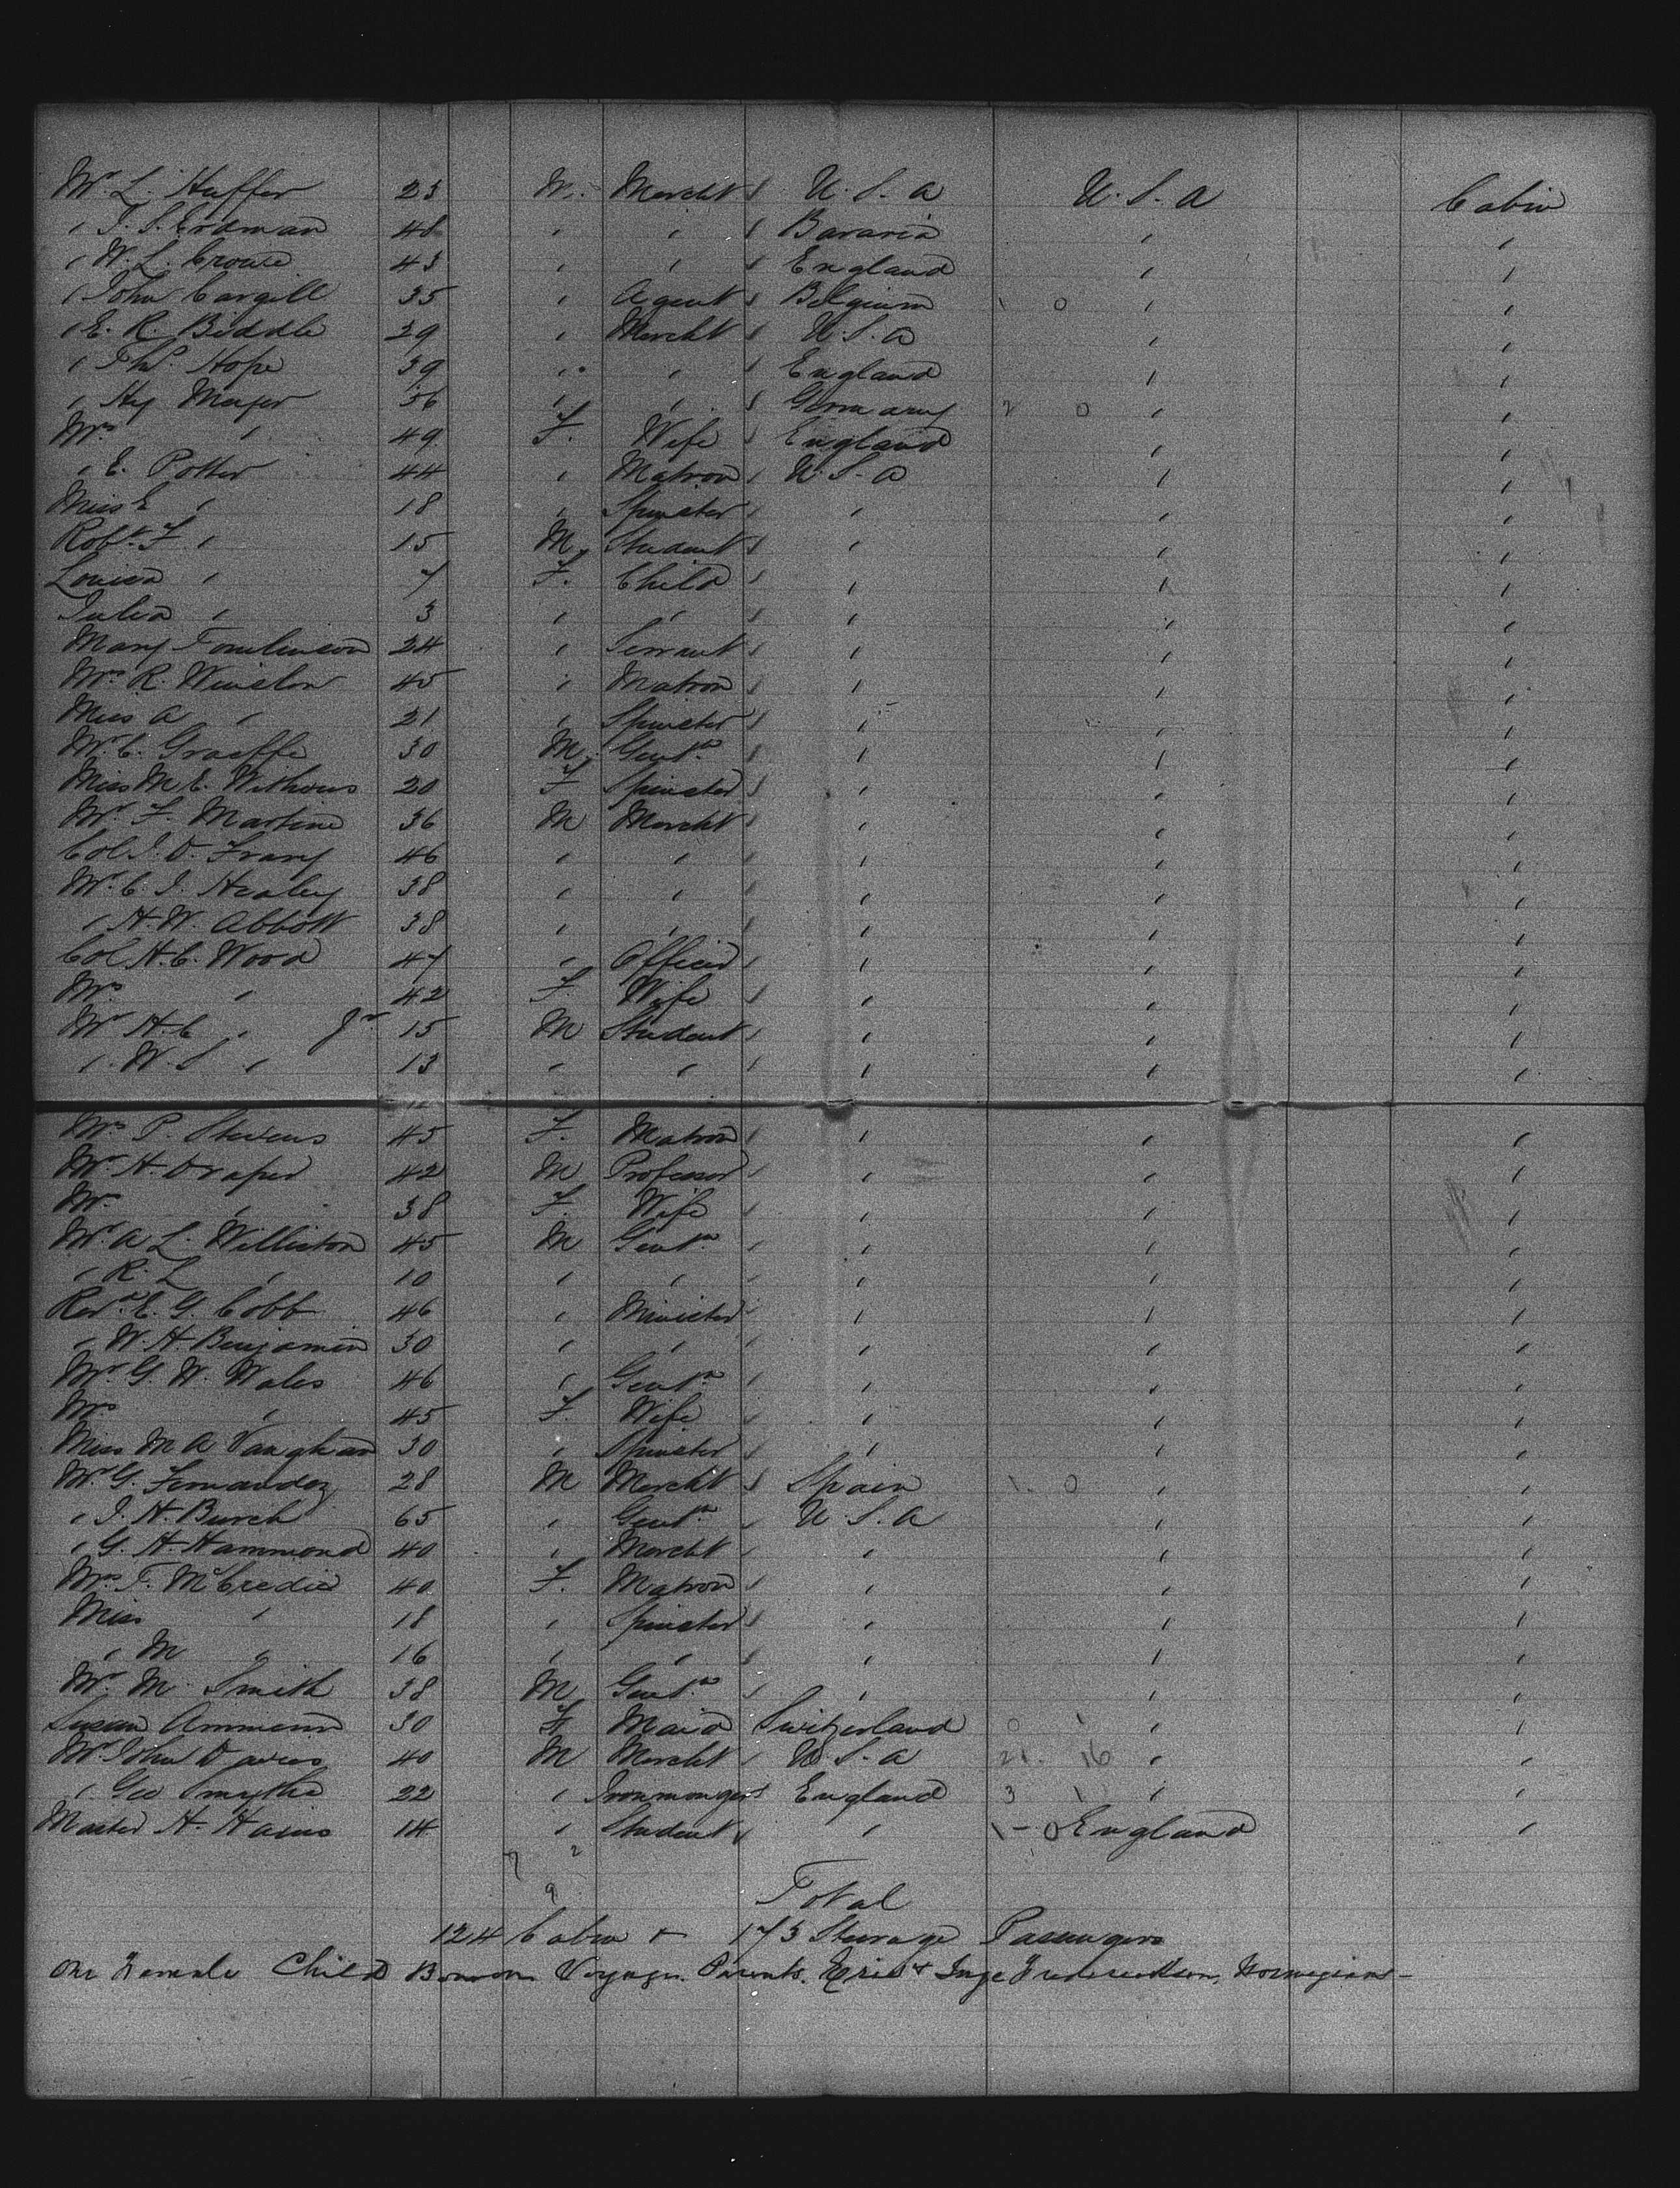 Mr. L. Huffer 23 M. Mercht U.S.A U.S.A Cabin
" I. S. Erdman 48 " " Bavaria " "
" W. L. Crowe 43 " " England " "
" John Cargill 35 " Agent Belgium 1 0 " "
" E. R. Biddle 29 " Mercht U.S.A " "
" Thos. Hope 39 " " England " "
" Hy Meyer 56 " " Germany 2 0 " "
Mrs " 49 F. Wife England " "
" E. Potter 44 " Matron U.S.A " "
Miss E " 18 " Spinster " " "
Robt. F. " 15 M. Student " " "
Louisa " 7 F. Child " " "
Julia " 3 " " " " "
Mary Tomlinson 24 " Servant " " "
Mrs R. Winslow 45 " Matron " " "
Miss A " 21 " Spinster " " "
Mr. C. Graeffe 30 M. Gentn. " " "
Miss M. E. 20 F Spinster " " "
Mr. F. Martine 36 M Mercht " " "
Col. I. D. Frary 46 " " " " "
Mr. C. I. Healey 38 " " " " "
" H. W. Abbott 38 " " " " "
Col. H. C. Wood 47 " Officer " " "
Mrs " 42 F. Wife " " "
Mr H. C " Jr. 15 M Student " " "
" W. S " 13 " " " " "
Mrs P. Stevens 45 F. Matron " " "
Mr. H. Draper 42 M Professor " " "
Mrs " 38 F. Wife " " "
Mr. A. L. Williston 45 M Gentn. " " "
" R. L " 10 " " " " "
Revd. E. G. Cobb 46 " Minister " " "
" W. H. Benjamin 30 " " " " "
Mr. G. W. Wales 46 " Gentn " " "
Mrs " 45 F. Wife " " "
Miss M A Vaughan 30 " Spinster " " "
Mr. G. Fernandez 28 M Mercht Spain 1 0 " "
" I. H. Burch 65 " Gentn. U.S.A " "
" G. H. Hammond 40 " Mercht " " "
Mrs. F. McCredie 40 F. Matron " " "
Miss " 18 " Spinster " " "
" M " 16 " " " " "
Mr. M. Smith 38 M Gentn. " " "
Susan Ammann 30 F Maid Switzerland 0 1 " "
Mr John Davies 40 M Mercht U.S.A 21. 16 " "
" Geo Smythe 22 " Ironmonger England 3 1 " "
Master H. 14 " Student " 1 - 0 England "
7 2
9
Total
124 Cabin + 173 Steerage Passengers
One Female Child Born on Voyage. Parents. Eric + Inge Frederickson, Norwegians -